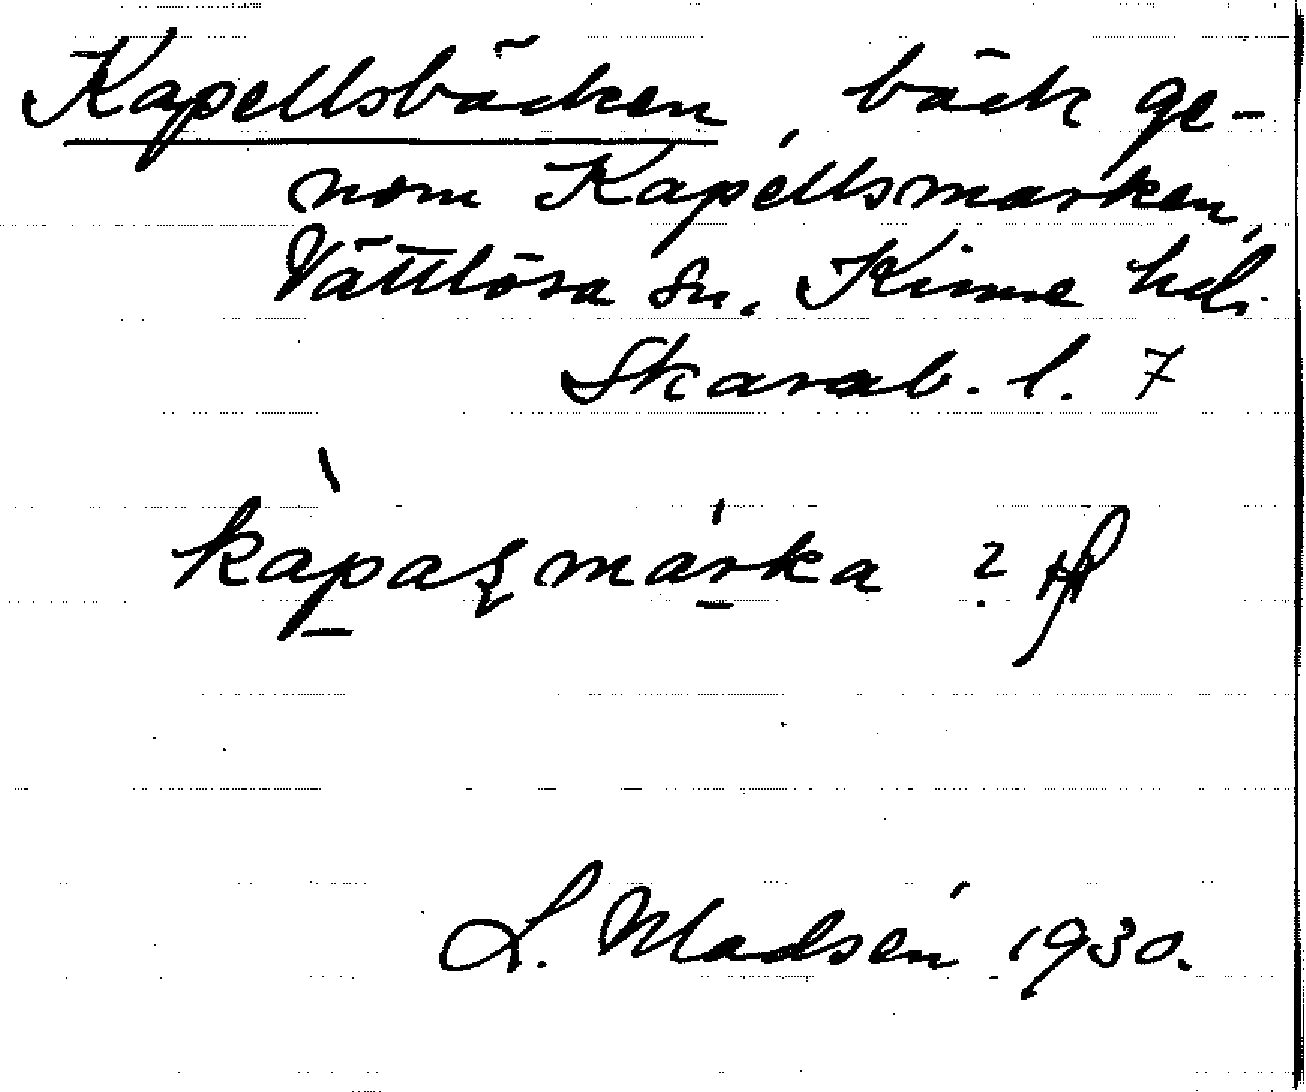 Kapellsbäcken, bäck ge-
nom Kapellsmarken,
Vättlösa sn. Kinne hd.
Skarab. l. 7
L. Madsén 1930.